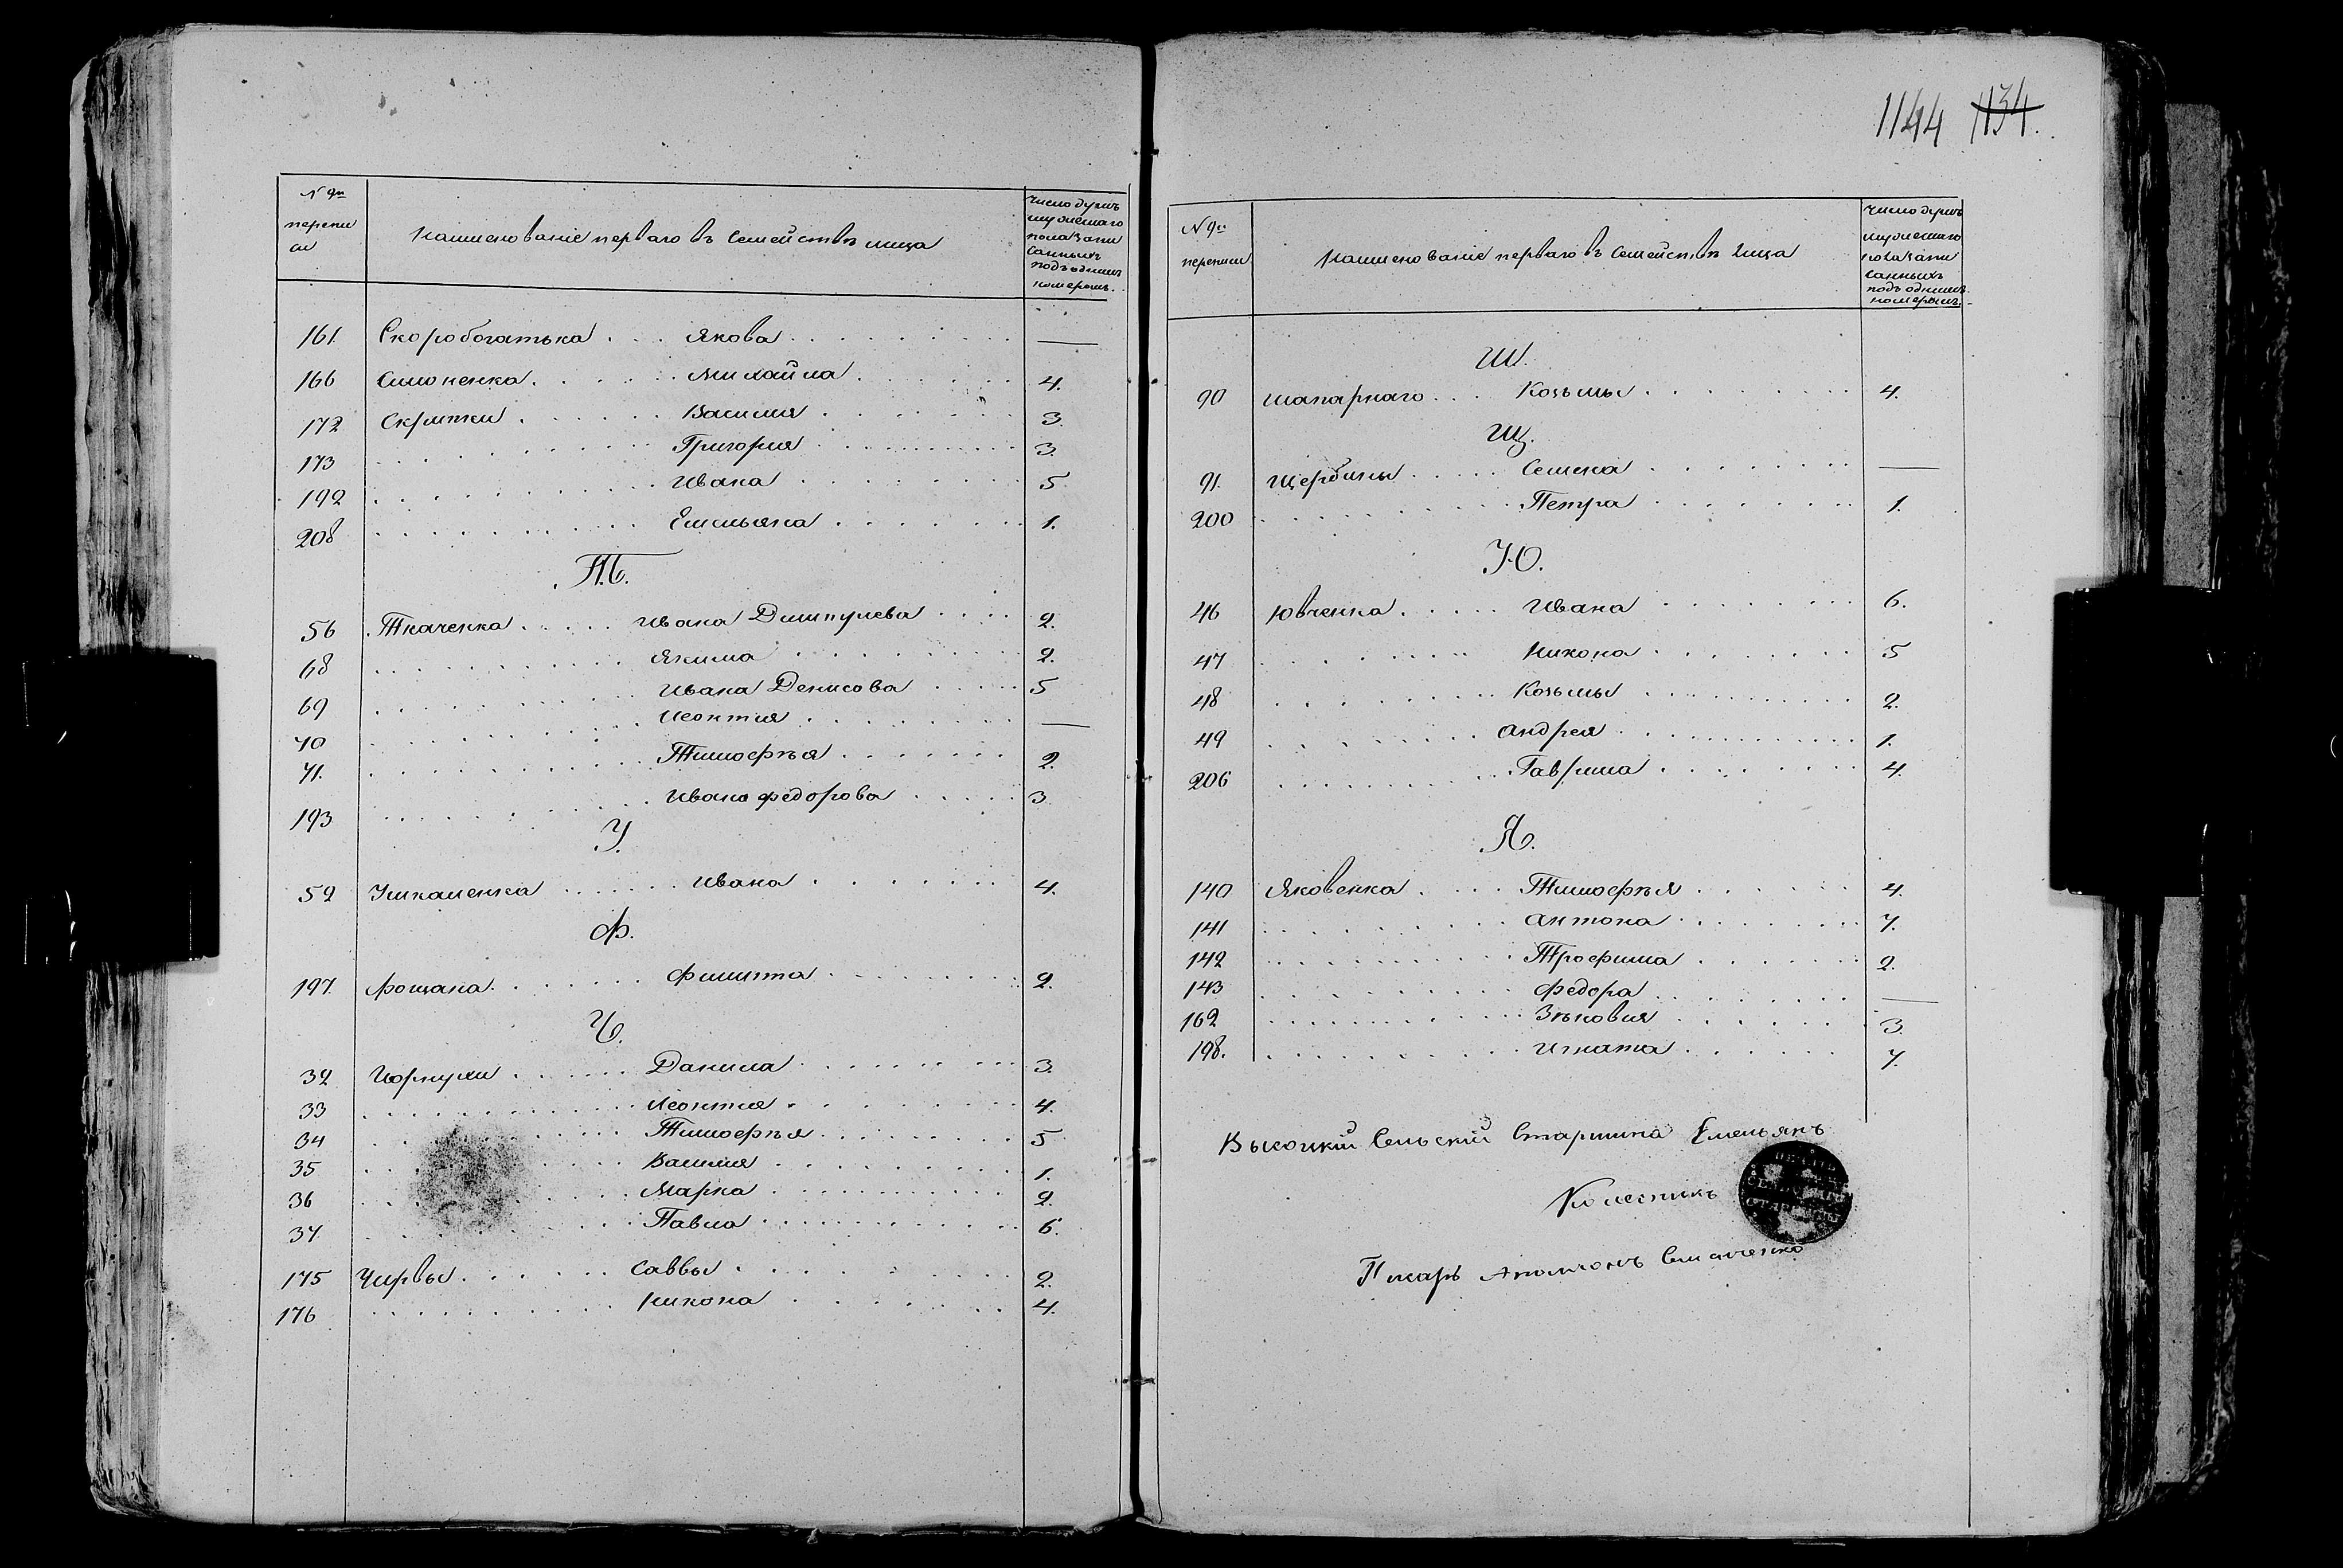 1144 1134.
N 9й
перепи
си
Наименованіе перваго въ семействѣ лица
Число душъ
мужескаго
пола запи
санныхъ
подъ однимъ
номеромъ.
161. Скоробогатька . . . Якова . . . —
166 Симоненка . . . Михайла . . . 4.
172 Скрипки . . . Василия . . . 3.
173 . . . Григория . . . 3.
192 . . . Ивана . . . 5
208 . . . Емельяна . . . 1.
Т.
56 Ткаченка . . . Ивана Дмитриева . . . 2.
68 . . . Якима . . . 2.
69 . . . Ивана Денисова . . . 5
70 . . . Леонтия . . . —
71. . . . Тимофѣя . . . 2.
193 . . . Ивана Федорова . . . 3
У.
52 Ушкаленка . . . Ивана . . . 4.
Ф.
197. Фощана . . . Филиппа . . . 2.
Ч.
32 Чорнухи . . . Данила . . . 3.
33 . . . Леонтия . . . 4.
34 . . . Тимофѣя . . . 5
35 . . . Василия . . . 1.
36 . . . Марка . . . 2.
37. . . . Павла . . . 6.
175 Чирвы . . . Саввы . . . 2.
176 . . . Никона . . . 4.
N 9й
переписи
Наименованіе перваго въ семействѣ лица
Число душъ
мужескаго
пола запи
санныхъ
подъ однимъ
номеромъ.
Ш.
90 Шапарнаго . . . Козьмы . . . 4.
Щ.
91. Щербины . . . Семена . . . —
200 . . . Петра . . . 1.
Ю.
46 Ювченка . . . Ивана . . . 6.
47 . . . Никона . . . 5
48 . . . Козьмы . . . 2.
49 . . . Андрея . . . 1.
206 . . . Гаврила . . . 4.
Я.
140 Яковенка . . . Тимофѣя . . . 4.
141 . . . Антона . . . 7.
142 . . . Трофима . . . 2.
143 . . . Федора . . . —
162 . . . Зѣновия . . . 3.
198. . . . Игната . . . 7.
Высоцкій Сельскій Старшина Емельянъ
Колесникъ
Писарь